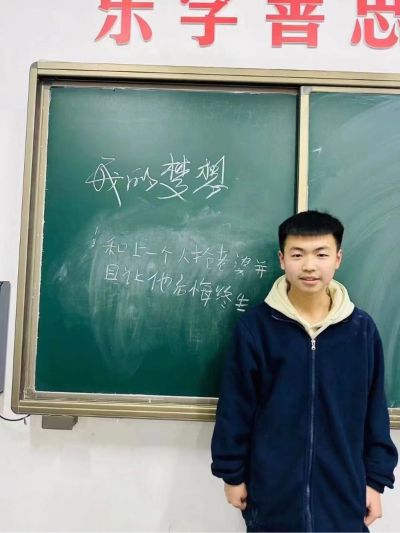 乐学善思
我的梦想
1: 和上一个人抢老婆并
且让他后悔终生